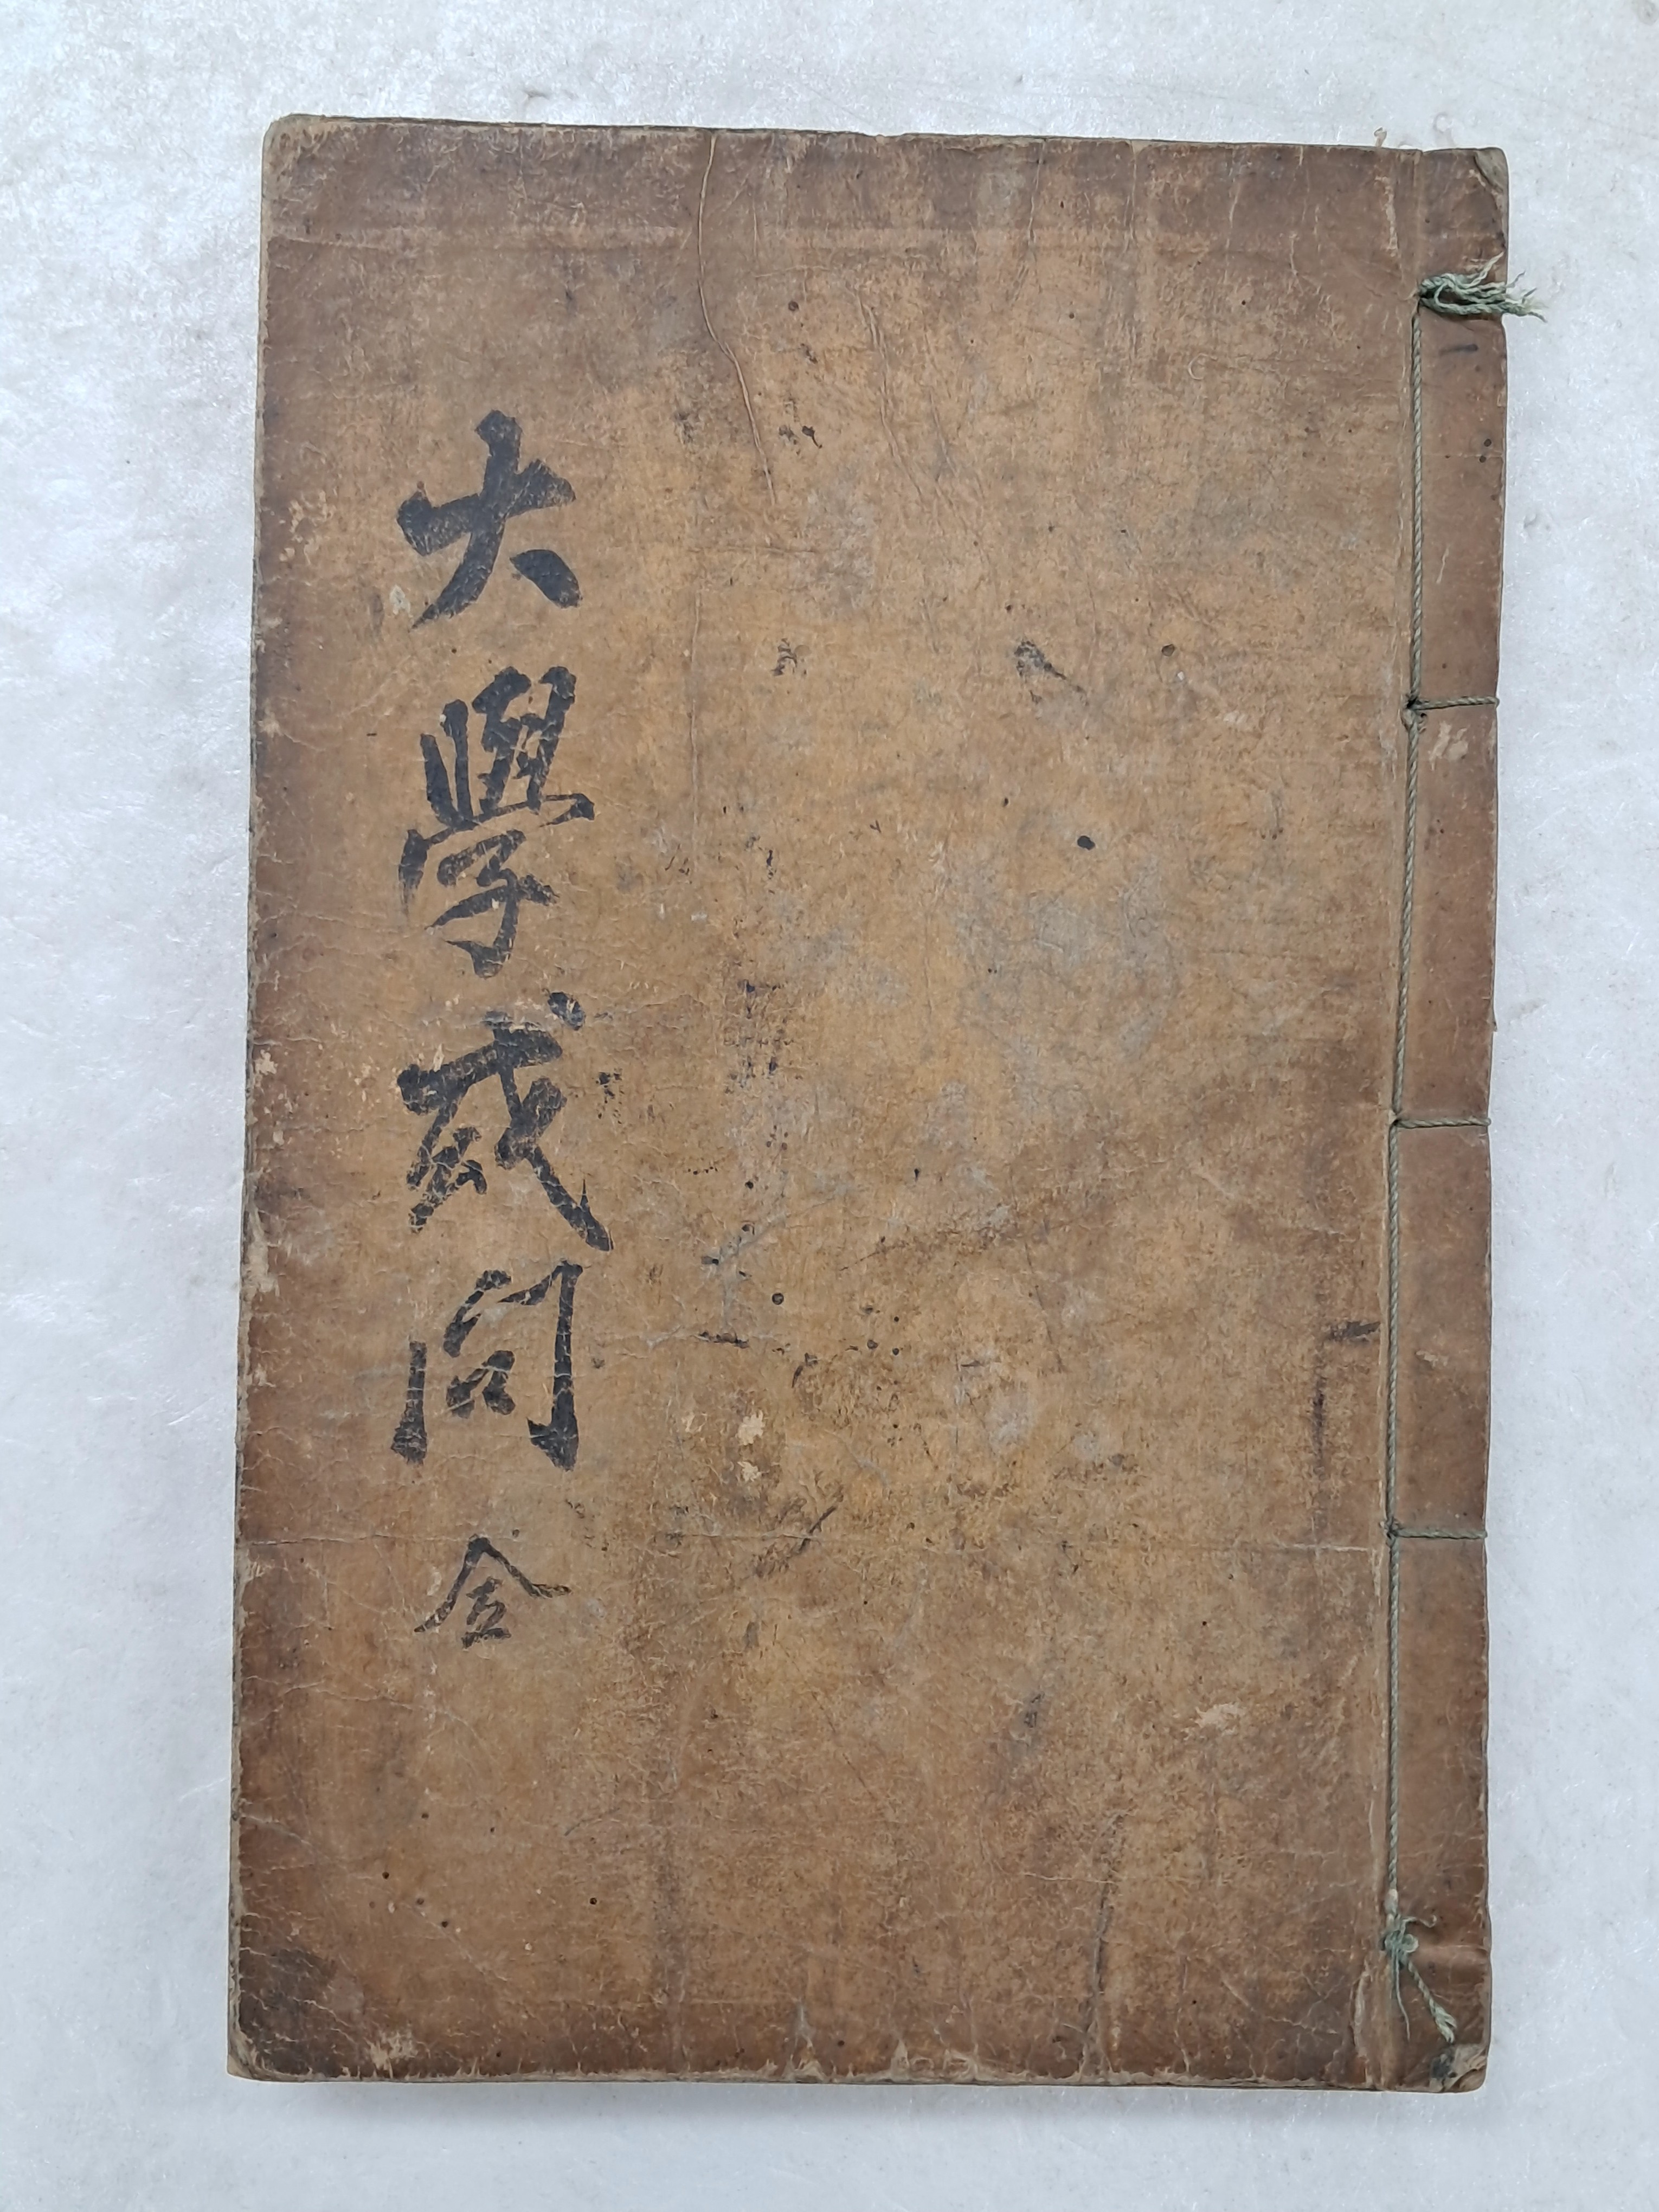 大學或問 全